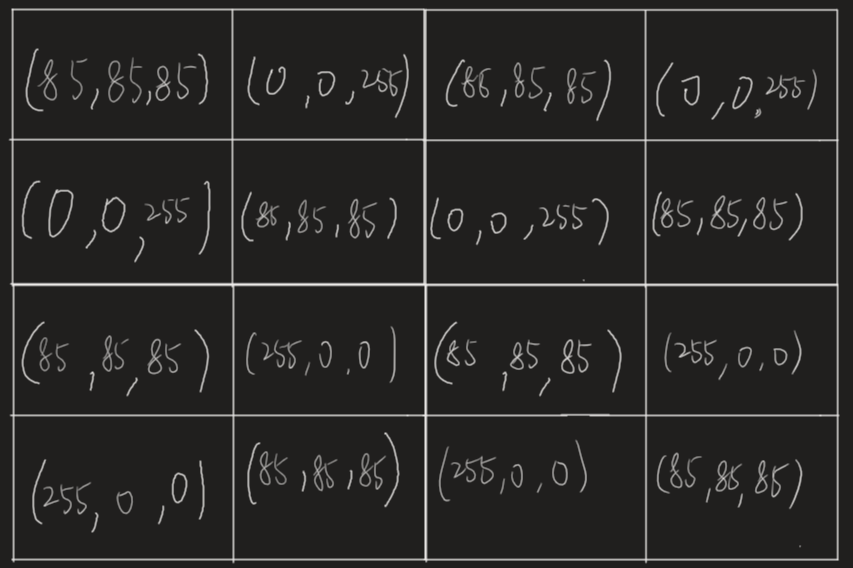 (85,85,85) (0,0,255) (85,85,85) (0,0,255)
(0,0,255) (85,85,85) (0,0,255) (85,85,85)
(85,85,85) (255,0,0) (85,85,85) (255,0,0)
(255,0,0) (85,85,85) (255,0,0) (85,85,85)